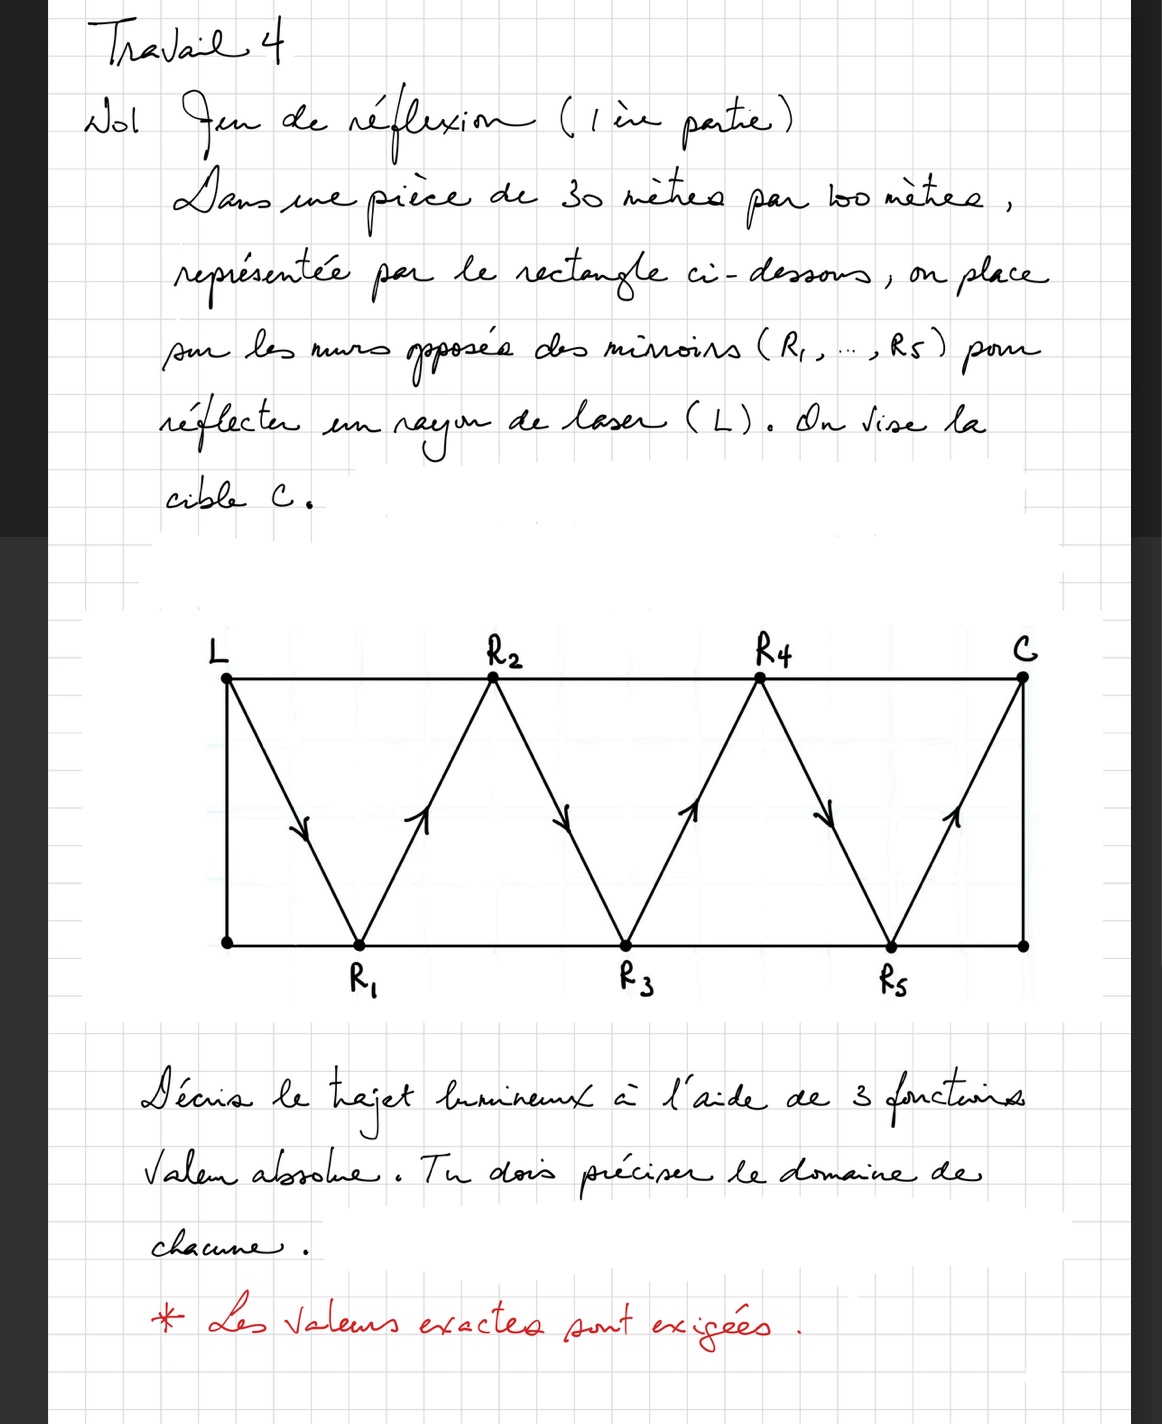 Travail 4
No1 Jeu de réflexion (1ère partie)
Dans une pièce de 30 mètres par 100 mètres,
représentée par le rectangle ci-dessous, on place
sur les murs opposés des mirroirs (R1, ..., R5) pour
réflecter un rayon de laser (L). On vise la
cible C.
L R2 R4 C
R1 R3 R5
Décris le trajet lumineux à l'aide de 3 fonctions
Valeur absolue. Tu dois préciser le domaine de
chacune.
* Les valeurs exactes sont exigées.